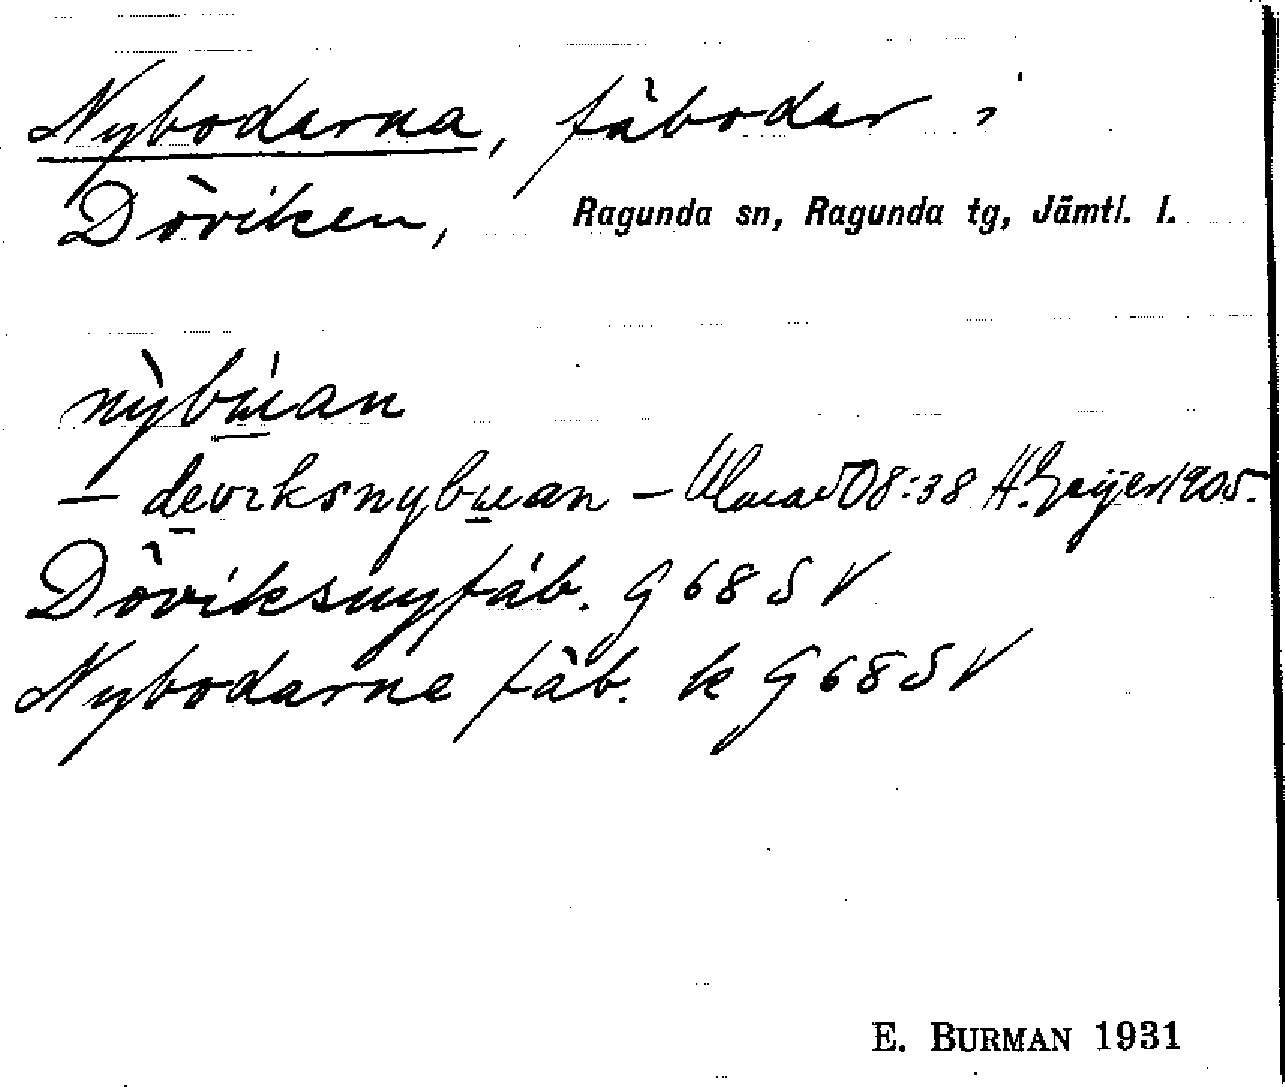 Nybodarna, fäbodar i
Döviken, Ragunda sn, Ragunda tg, Jämtl. l.
nỳbɯ́an
— devıksnybɯan – 08:38 H. Geijer 1905.
Döviksnyfäb. G 68 S V
Nybodarne fäb. k G 68 S V
E. BURMAN 1931